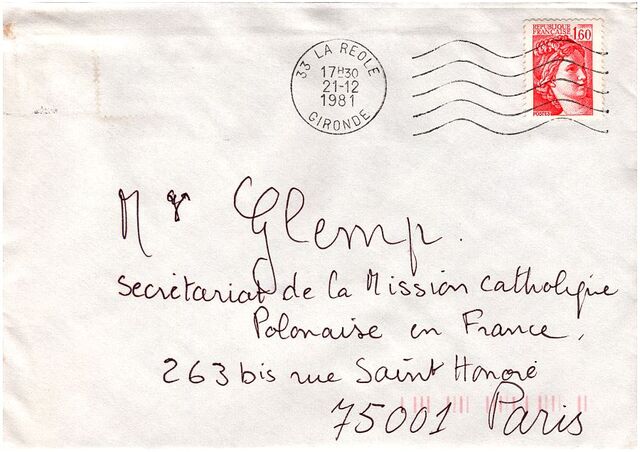 33 LA REOLE
17H30
21-12
1981
GIRONDE
REPUBLIQUE
FRANÇAISE
1,60
POSTES
Mgr Glemp.
Secrétariat de la Mission catholique
Polonaise en France,
263 bis rue Saint Honoré
75001 Paris